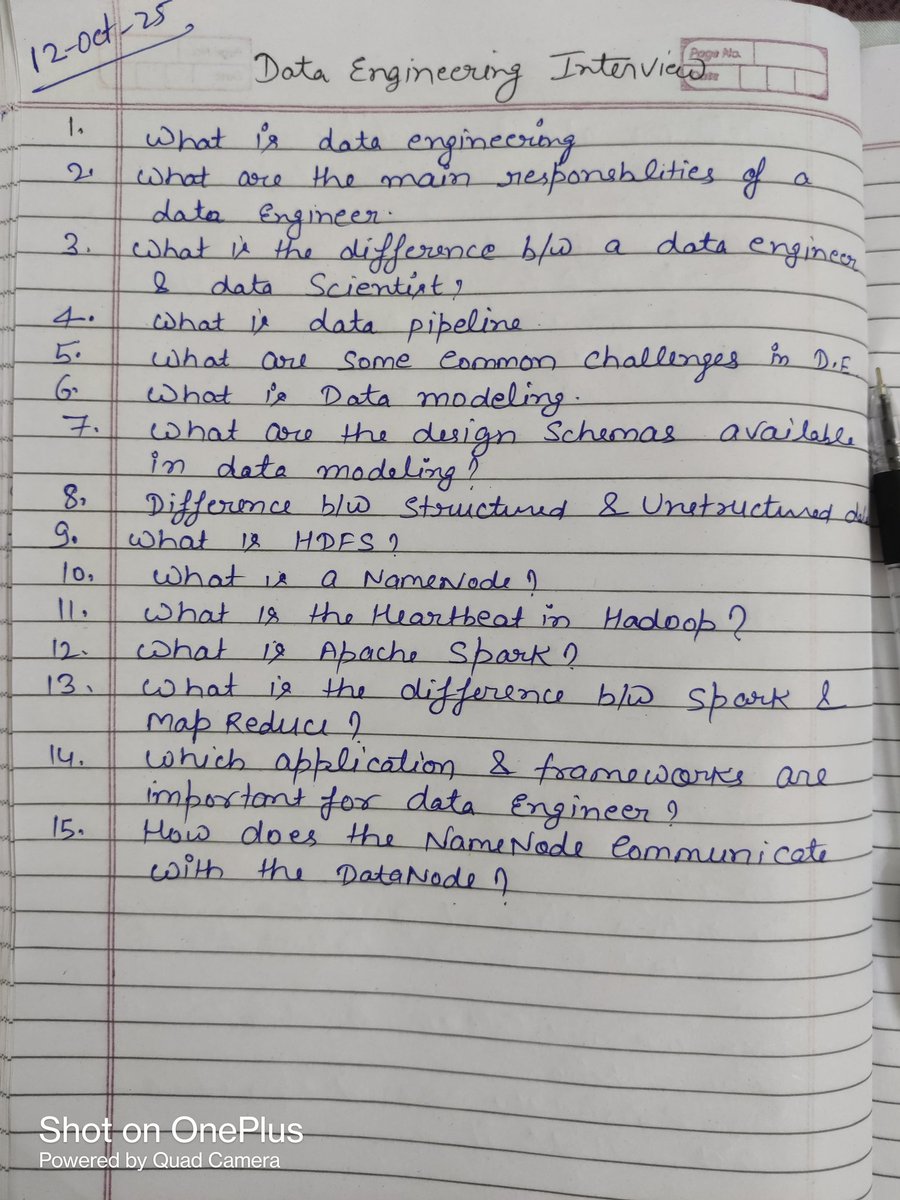 12-Oct-25
Data Engineering Interview
Page No.
1. What is data engineering
2. What are the main responsblities of a
data Engineer.
3. What is the difference b/w a data engineer
& data Scientist?
4. What is data pipeline
5. What are some Common Challenges in D.E
6. What is Data modeling.
7. What are the design Schemas available
in data modeling?
8. Difference b/w Structured & Unstructured
9. What is HDFS?
10. What is a NameNode?
11. What is the Heartbeat in Hadoop?
12. What is Apache Spark?
13. What is the difference b/w Spark &
Map Reduce?
14. Which application & frameworks are
important for data Engineer?
15. How does the NameNode Communicate
with the DataNode?
Shot on OnePlus
Powered by Quad Camera